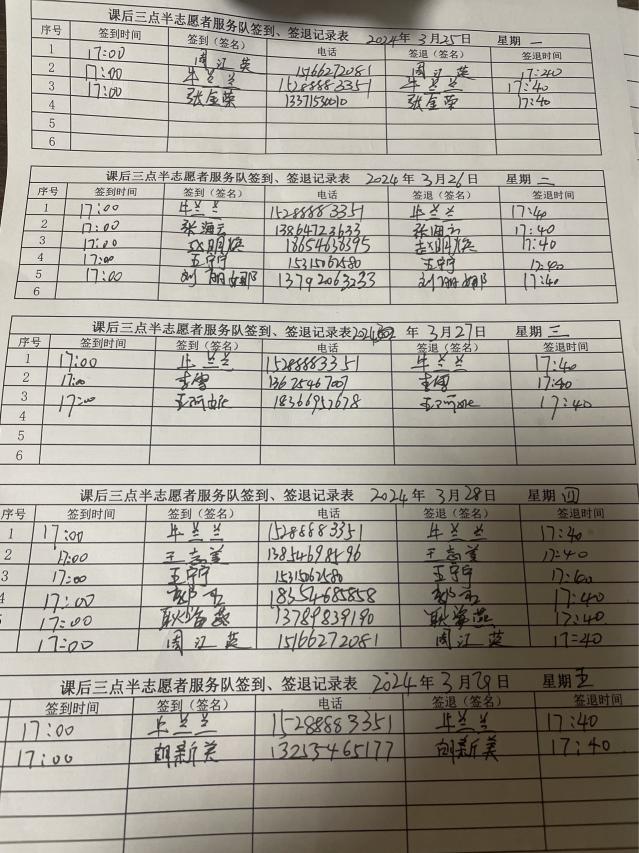 课后三点半志愿者服务队签到、签退记录表 2024年 3月25日 星期 一
序号 签到时间 签到（签名） 电话 签退（签名） 签退时间
1 17:00 周江英 15166272081 周江英 17:40
2 17:00 牛兰兰 15288883351 牛兰兰 17:40
3 17:00 张金荣 张金荣 17:40
4
5
6
课后三点半志愿者服务队签到、签退记录表 2024年 3月26日 星期 二
序号 签到时间 签到（签名） 电话 签退（签名） 签退时间
1 17:00 牛兰兰 15288883351 牛兰兰 17:40
2 17:00 张海云 13864723633 张海云 17:40
3 17:00 18654638395 17:40
4 17:00 王宁宁 15315062580 王宁宁 17:40
5 17:00 刘丽娜 13792063233 刘丽娜 17:40
6
课后三点半志愿者服务队签到、签退记录表2024年 3月27日 星期 三
序号 签到时间 签到（签名） 电话 签退（签名） 签退时间
1 17:00 牛兰兰 15288883351 牛兰兰 17:40
2 17:00 李雪 13625467007 李雪 17:40
3 17:00 18366957678 17:40
4
5
6
课后三点半志愿者服务队签到、签退记录表 2024年 3月28日 星期 四
序号 签到时间 签到（签名） 电话 签退（签名） 签退时间
1 17:00 牛兰兰 15288883351 牛兰兰 17:40
2 17:00 王志美 13854698496 王志美 17:40
3 17:00 王宁宁 15315062580 王宁宁 17:40
4 17:00 18354685858 17:40
17:00 耿海燕 13789839190 耿海燕 17:40
17:00 周江英 15166272081 周江英 17:40
课后三点半志愿者服务队签到、签退记录表 2024年 3月29日 星期五
签到时间 签到（签名） 电话 签退（签名） 签退时间
17:00 牛兰兰 15288883351 牛兰兰 17:40
17:00 胡新美 13255465177 胡新美 17:40